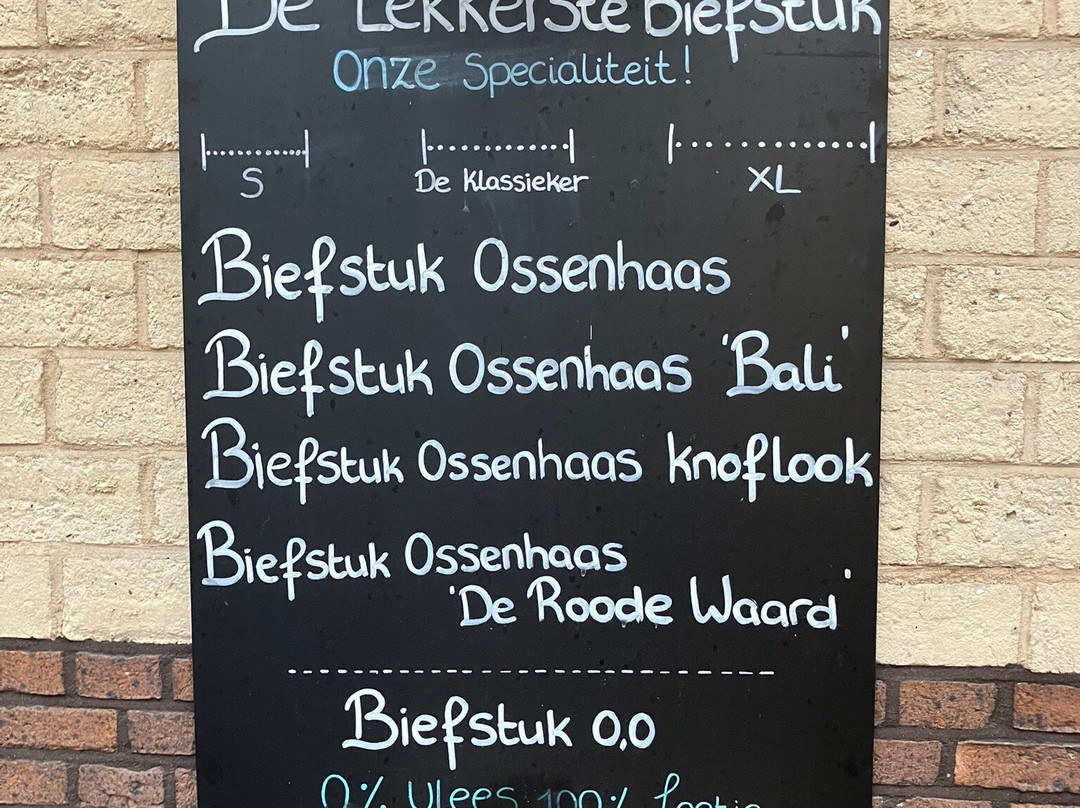 De Lekkerste Biefstuk
Onze Specialiteit!
S De Klassieker XL
Biefstuk Ossenhaas
Biefstuk Ossenhaas 'Bali'
Biefstuk Ossenhaas knoflook
Biefstuk Ossenhaas
'De Roode Waard'
Biefstuk 0,0
0% Vlees 100%